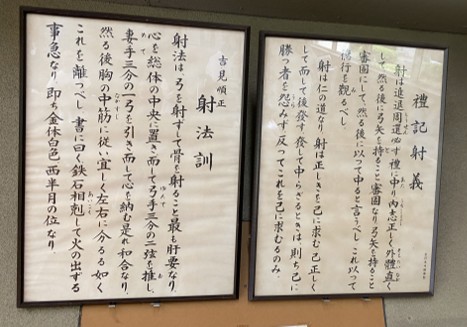 禮記射義
射は進退周還必ず禮に中り内志正しく外體直く
して、然る後に弓矢を持ること審固なり弓矢を持ること
審固にして、然る後に以って中ると言うべし これ以って
徳行を觀るべし
射は仁の道なり 射は正しきを己に求む 己正しく
して而して後發す 發して中らざるときは、則ち己に
勝つ者を怨みず 反ってこれを己に求むるのみ.
吉見順正
射法訓
射法は、弓を射ずして骨を射ること最も肝要なり.
心を総体の中央に置き而して弓手三分の二弦を推し、
妻手三分の一弓を引き而して心を納む是れ和合なり.
然る後胸の中筋に従い宜しく左右に分るる如く
これを離つべし 書に曰く鉄石相剋して火の出する
事急なり 即ち金体白色 西半月の位なり.